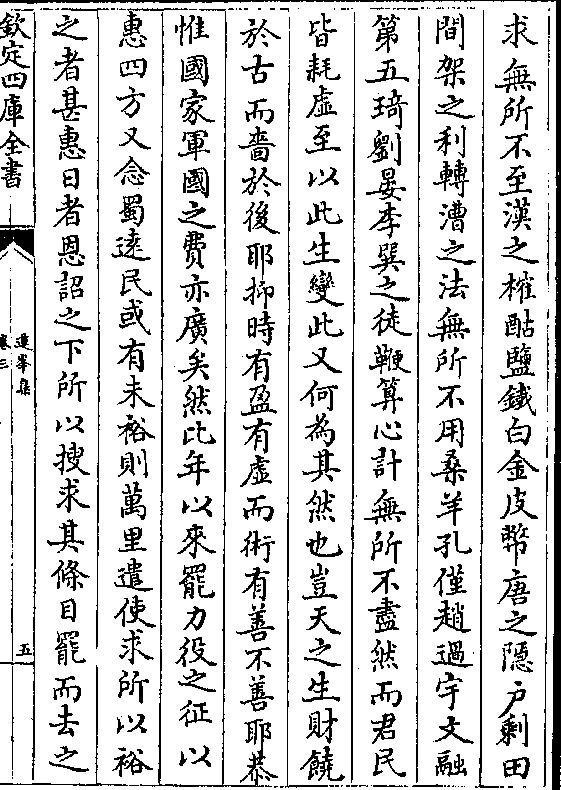 求無所不至漢之榷酤鹽鐵白金皮幣唐之隱户剩田
間架之利轉漕之法無所不用桑羊孔僅趙過宇文融
第五琦劉晏李巽之徒鞭算心計無所不盡然而君民
皆耗虛至以此生變此又何為其然也豈天之生財饒
於古而嗇於後耶抑時有盈有虛而術有善不善耶恭
惟國家軍國之費亦廣矣然比年以來罷力役之征以
惠四方又念蜀逺民或有未裕則萬里遣使求所以裕
之者甚惠日者恩詔之下所以搜求其條目罷而去之
欽定四庫全書
蓮峯集
卷三
五